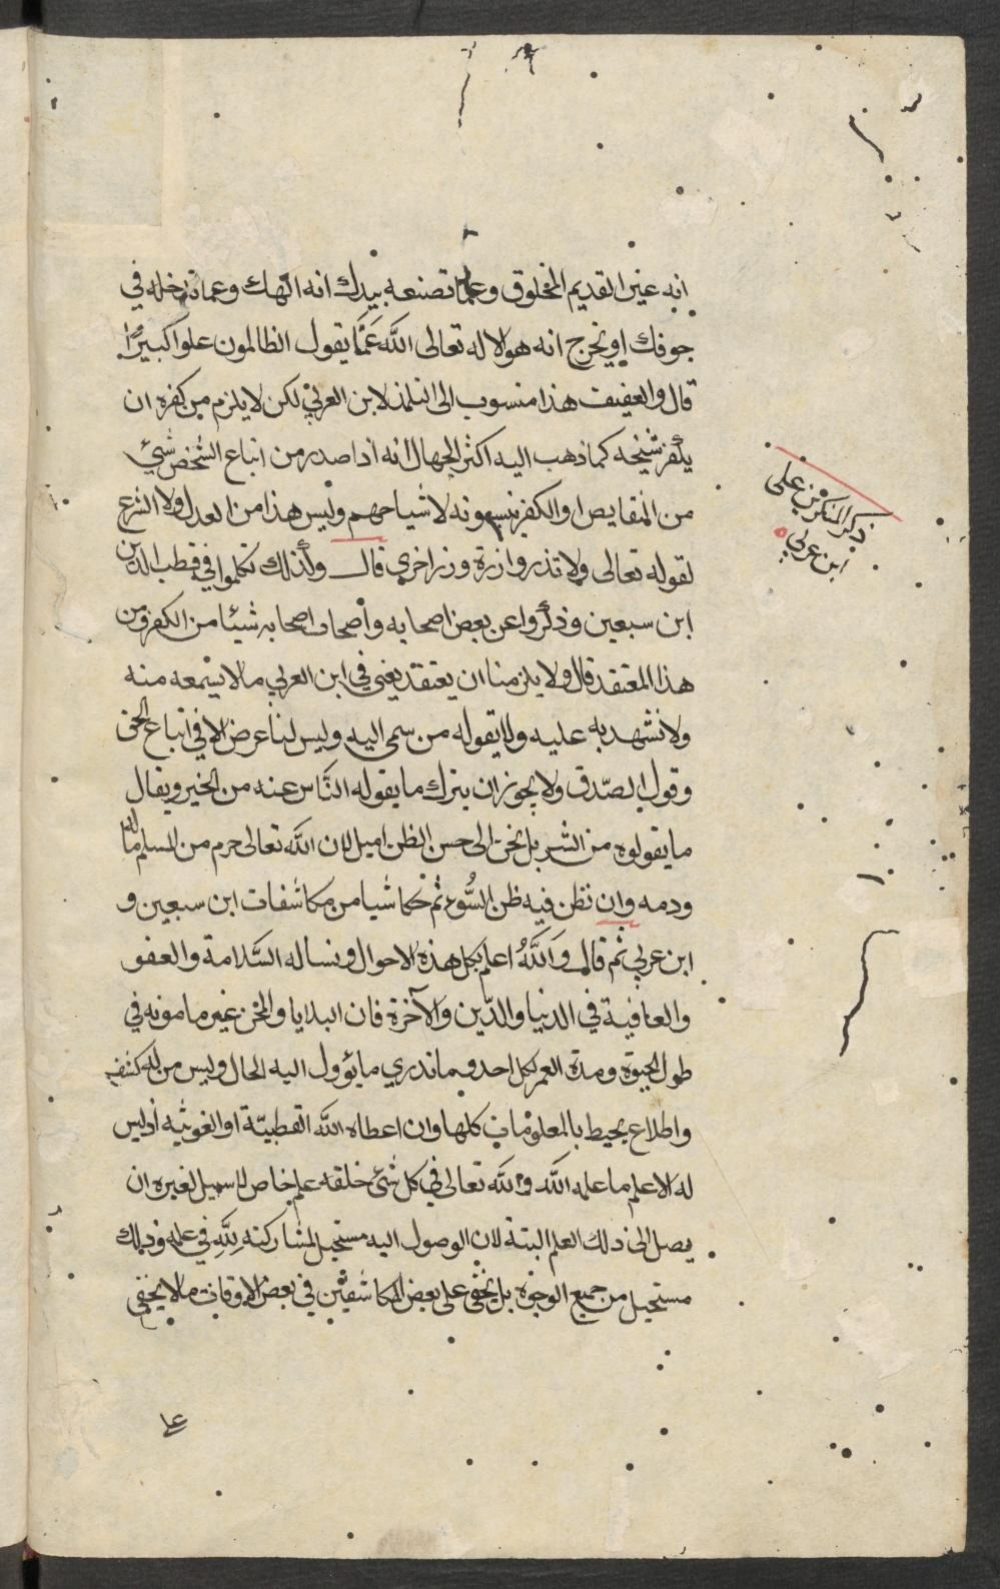 انه عين القديم المخلوق وعما تصنعه بيدك انه الهك وعما تدخله في
جوفك او يخرج انه هو لا اله تعالى الله عَمَّا يقول الظالمون علوا كبيرًا
قال والعفيف هذا منسوب الى التلمذ لابن العربي لكن لا يلزم من كفره ان
يكفر شيخه كما ذهب اليه اكثر الجهال انه اذا صدر من اتباع الشخص شئ
من النقايص او الكفر ينسبونه لاشياخهم وليس هذا من العدل ولا الشرع
لقوله تعالى ولا تذر وازرة وزر اخرى قال ولذلك تكلموا في قطب الدين
ابن سبعين وذكروا عن بعض اصحابه وأصحاب اصحابه شيئا من الكفر من
هذا المعتقد قال ولا يلزمنا ان يعتقد يعني في ابن العربي ما لا يسمعه منه
ولا نشهد به عليه ولا يقوله من سمى اليه وليس لنا غرض الا في اتباع الحق
وقول الصّدق ولا يجوز ان يترك ما يقوله النَّاس عنه من الخير ويقال
ما يقولوه من الشر بل نحن الى حسن الظن اميل لان الله تعالى حرم من المسلم ماله
ودمه وان نظن فيه ظن السُّوء ثم حكا شيا من مكاشفات ابن سبعين و
ابن عربي ثم قال وَاللَّهُ اعلم بكل هذه الاحوال ونساله السَّلامة والعفو
والعافية في الدنيا والدّين والآخرة فان البلايا والمحن غير مامونه في
طول الحيوة ومدة العمر لكل احد وما ندري ما يؤول اليه الحال وليس من له كشف
واطلاع يحيط بالمعلومات كلها وان اعطاه الله القطبيّة او الغوثيه اذ ليس
له الا علم ما علمه الله والله تعالى في كل شئ خلقه علم خاص لا سبيل لغيره ان
يصل الى ذلك العلم البتة لان الوصول اليه مستحيل لمشاركته لله في علمه وذلك
مستحيل من جميع الوجوه بل يخفى على بعض المكاشفين في بعض الاوقات ما لا يخفى
على
ذكر المنكرين على
ابن عربي